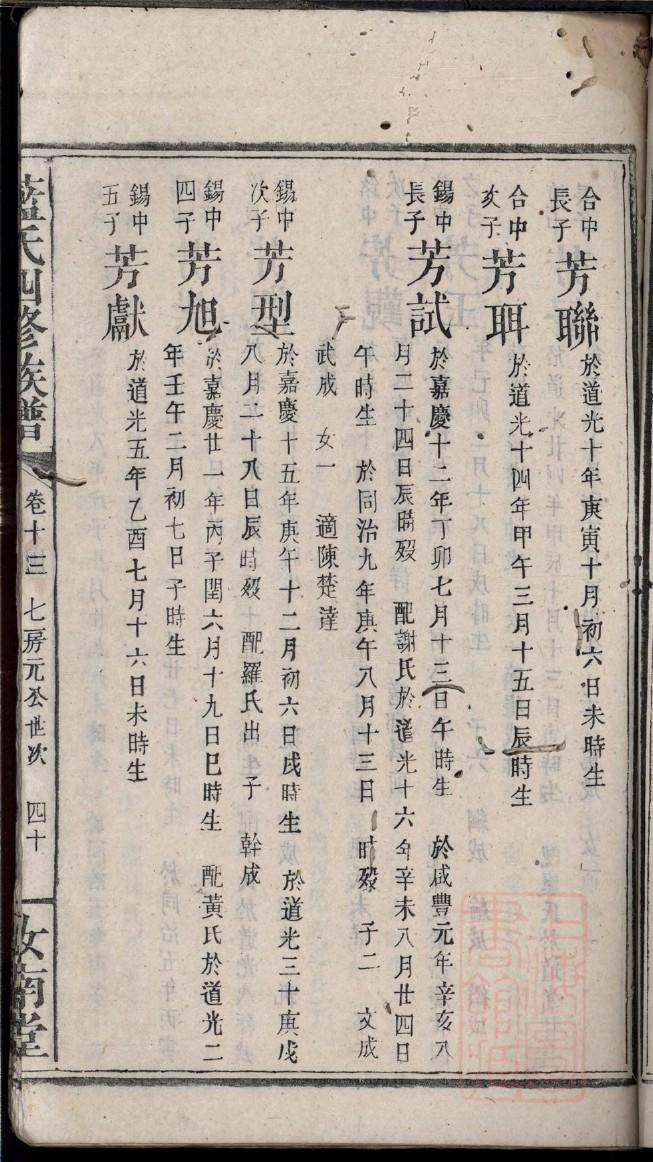 合中長子 芳聯 於道光十年庚寅十月初六日未時生
合中次子 芳珥 於道光十四年甲午三月十五日辰時生
錫中長子 芳試 於嘉慶十二年丁卯七月十三日午時生 於咸豐元年辛亥八
月二十四日辰時歿 配謝氏於道光十六年辛未八月廿四日
午時生 於同治九年庚午八月十三日 時歿 子二 文成
武成 女一 適陳楚達
錫中次子 芳型 於嘉慶十五年庚午十二月初六日戌時生 於道光三十庚戌
八月二十八日辰時歿 配羅氏出 子 幹成
錫中四子 芳旭 於嘉慶廿一年丙子閏六月十九日巳時生 配黃氏於道光二
年壬午二月初七日子時生
錫中五子 芳獻 於道光五年乙酉七月十六日未時生
藍氏四修族譜 卷十三 七房元公世次 四十 汝南堂